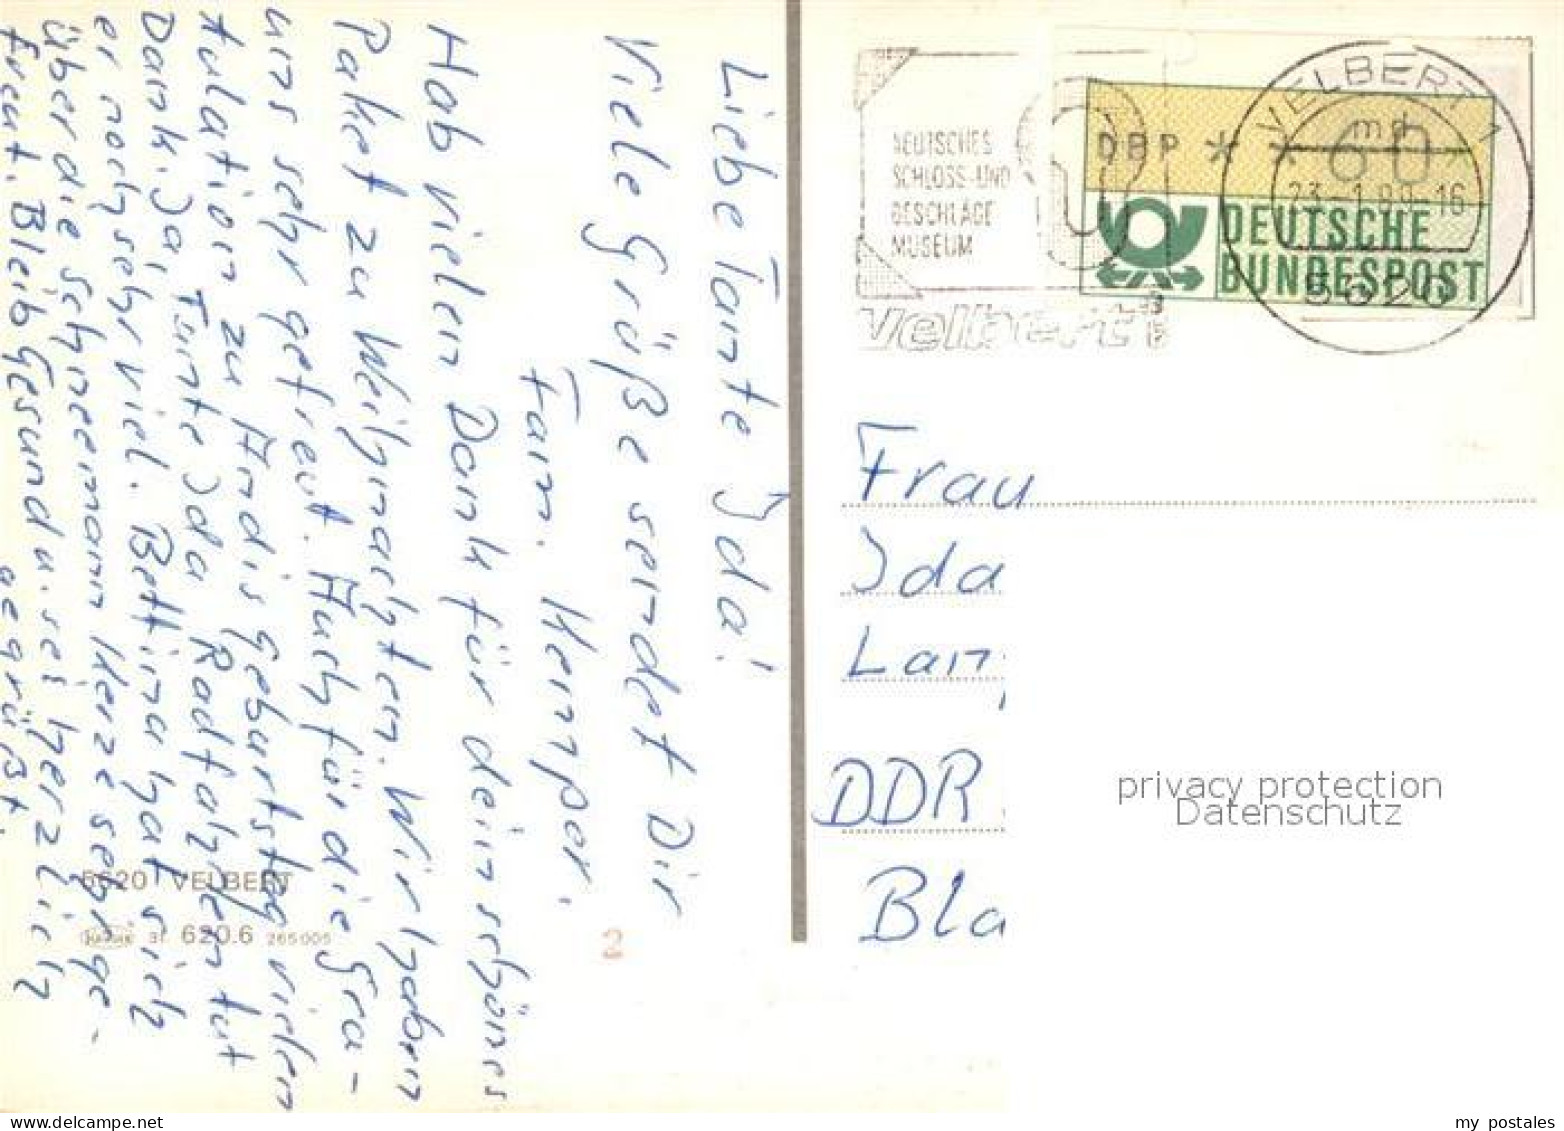 Liebe Tante Ida!
Viele Grüße sendet Dir
Fam. Kempor.
Hab vielen Dank für dein schönes
Paket zu Weihnachten. Wir haben
uns sehr gefreut. Auch für die Gra-
tulation zu Andis Geburtstag vielen
Dank. Ja, Tante Ida Radfahren tut
er noch sehr viel. Bettina hat sich
über die Schneemann Kerze sehr ge-
freut. Bleib Gesund u. sei herzlich
gegrüßt.
5620 VELBERT
31 620.6 265005
2
DEUTSCHES
SCHLOSS-UND
BESCHLÄGE
MUSEUM
Velbert
DBP * * 60 *
DEUTSCHE
BUNDESPOST
VELBERT 1
md
23-1.89-16
5620
Frau
Ida
Lan
DDR
Bla
privacy protection
Datenschutz
my postales